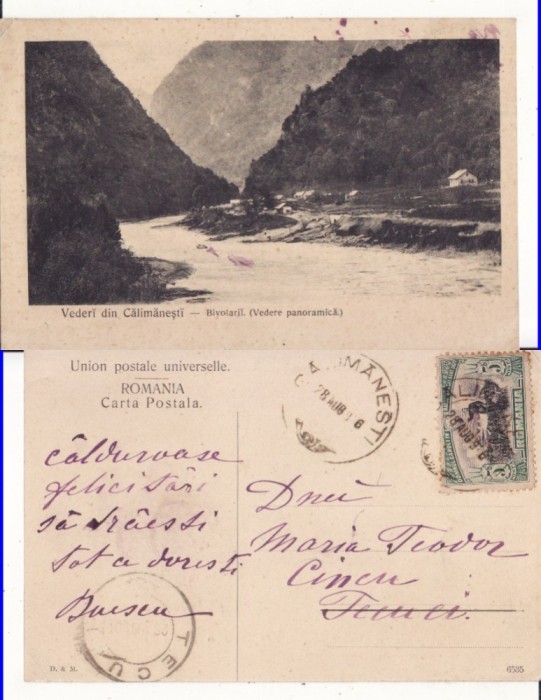 Vederĭ din Călimăneștĭ — Bivolariĭ. (Vedere panoramică.)
Union postale universelle.
ROMÂNIA
Carta Postala.
CALIMĂNEȘTI
28 AUG
ROMANIA
5
călduroase
felicitări
să trăesti
tot ce doresti
Dnei
Maria Teodor
Cincu
Tecuci.
TECUCI
D. & M.
6585